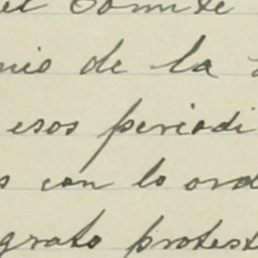 el Comité
nio de la
esos periodi
s con lo ord
grato protest